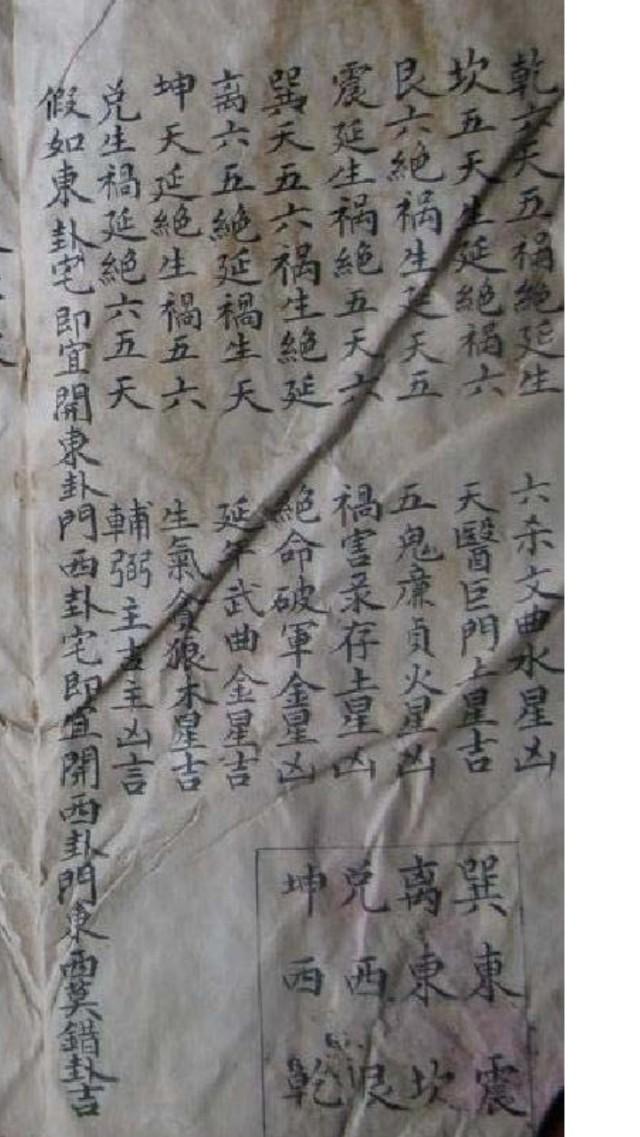 乾六天五禍絕延生
坎五天生延絕禍六
艮六絕禍生延天五
震延生禍絕五天六
巽天五六禍生絕延
离六五絕延禍生天
坤天延絕生禍五六
兌生禍延絕六五天
六杀文曲水星凶
天醫巨門土星吉
五鬼廉貞火星凶
禍害录存土星凶
絕命破軍金星凶
延年武曲金星吉
生氣貪狼木星吉
輔弼主吉主凶言
假如東卦宅即宜開東卦門西卦宅即宜開西卦門東西莫錯卦吉
巽東震
离東坎
兌西艮
坤西乾